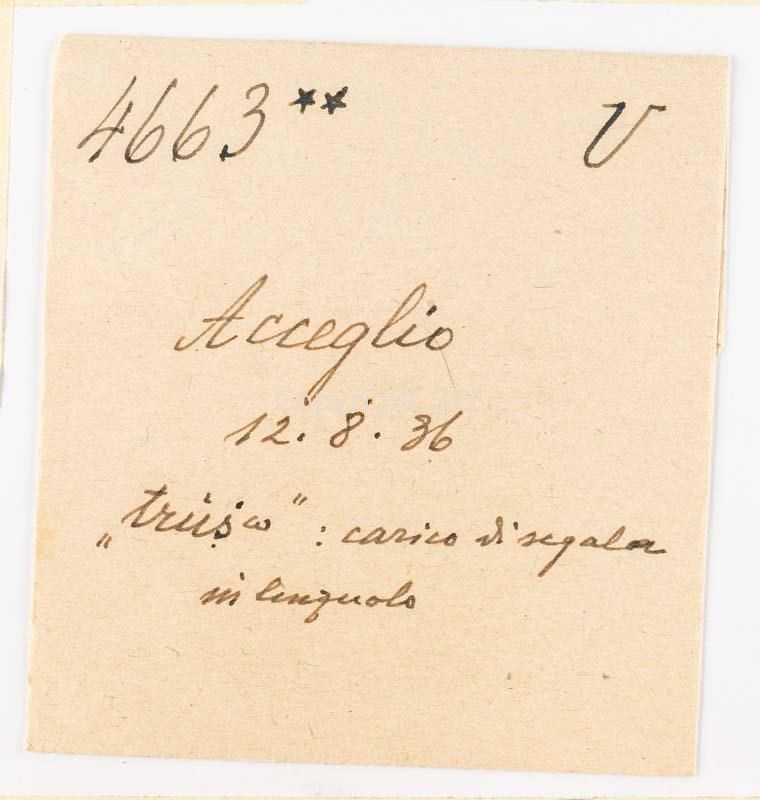 4663** V
Acceglio
12. 8. 36
„trüṡo" : carico di segala
in lenzuolo